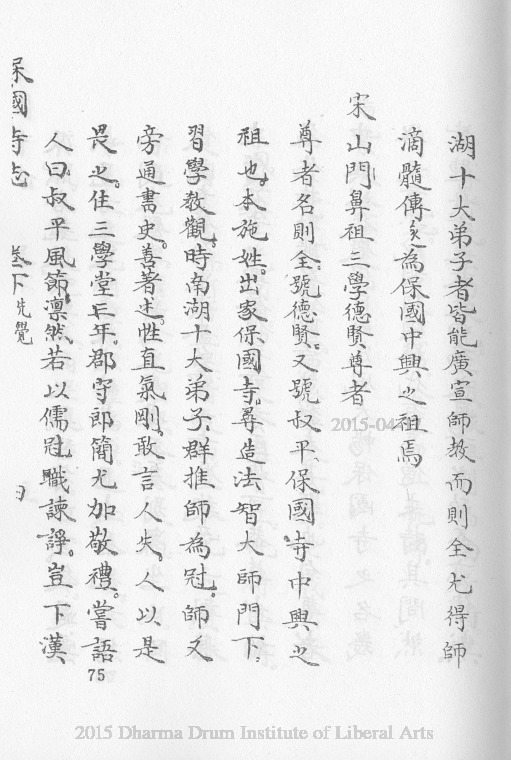 湖十大弟子者皆能廣宣師教而則全尤得師
滴髓傳爰為保國中興之祖焉
宋山門鼻祖三學德賢尊者
尊者名則全號德賢又號叔平保國寺中興之
祖也。本施姓。出家保國寺。尋造法智大師門下。
習學教觀。時南湖十大弟子、群推師為冠。師又
旁通書史。善著述。性直氣剛。敢言人失。人以是
畏之。住三學堂三年。郡守郎簡尤加敬禮。嘗語
人曰。叔平風節凛然。若以儒冠職諫諍。豈下漢
保國寺志 卷下先覺
75
2015-04
2015 Dharma Drum Institute of Liberal Arts